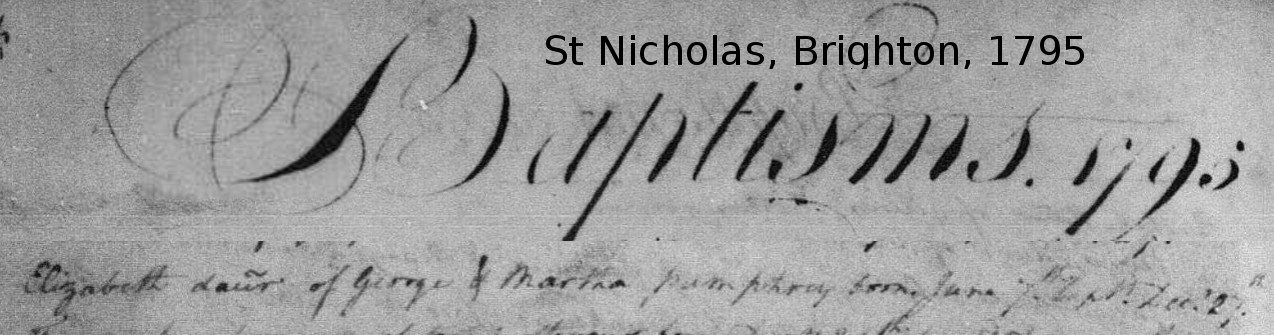 St Nicholas, Brighton, 1795
Baptisms. 1795
Elizabeth daũr of George & Martha Pumphrey born June 7th Bapt. Decr. 27th